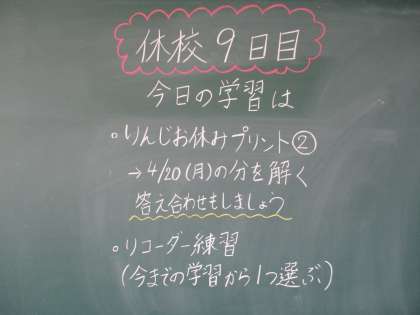 休校9日目
今日の学習は
○りんじお休みプリント②
→4/20(月)の分を解く
答え合わせもしましょう
○リコーダー練習
(今までの学習から1つ選ぶ)